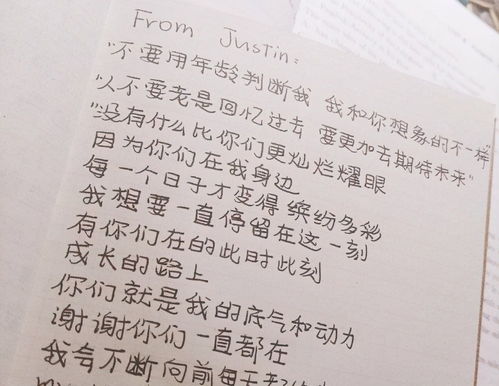 From Justin:
"不要用年龄判断我 我和你想象的不一样"
"人不要老是回忆过去 要更加去期待未来"
"没有什么比你们更灿烂耀眼
因为你们在我身边
每一个日子才变得缤纷多彩
我想要一直停留在这一刻
有你们在的此时此刻
成长的路上
你们就是我的底气和动力
谢谢你们一直都在
我会不断向前每天都